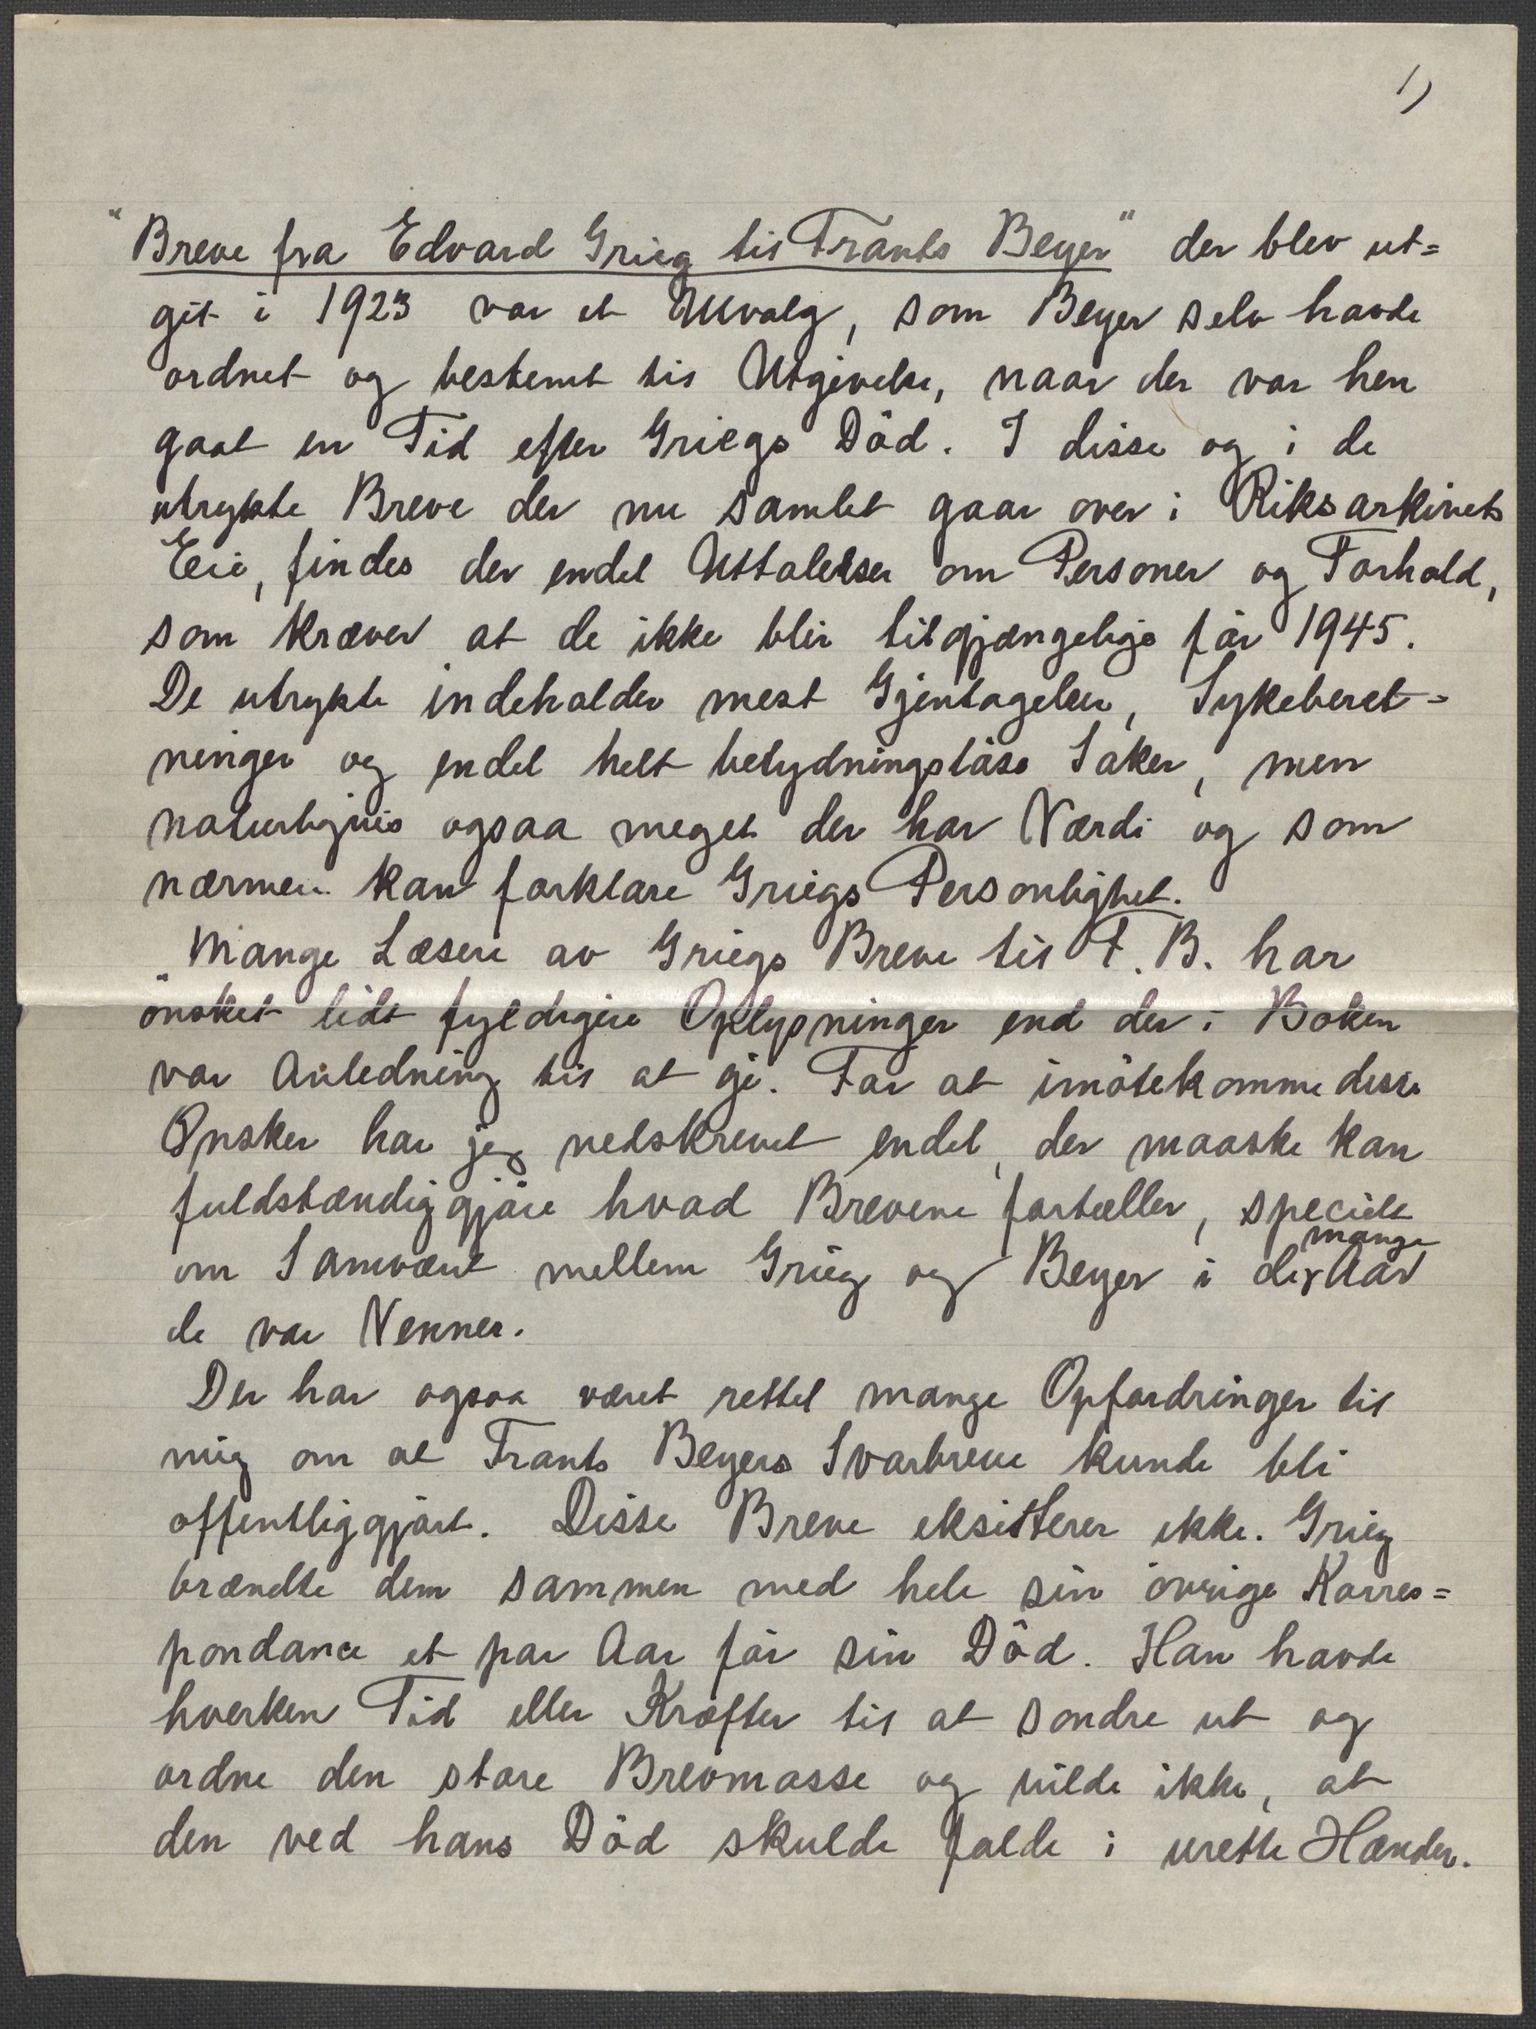 1)
"Breve fra Edvard Grieg til Frants Beyer" der blev ut=
git i 1923 var et Utvalg, som Beyer selv havde
ordnet og bestemt til Utgivelse, naar der var hen
gaat en Tid efter Griegs Död. I disse og i de
utrykte Breve der nu samlet gaar over i Riksarkivets
Eie, findes der endel Uttalelser om Personer og Forhold,
som kræver at de ikke blir tilgjængeligeför 1945.
De utrykte indeholder mest Gjentagelser, Sykeberet=
ninger og endel helt betydningslöse Saker, men
naturligvis ogsaa meget der har Værdi og som
nærmere kan forklare Griegs Personlighet.
Mange Læsere av Griegs Breve til F. B. har
önsket lidt fyldigere Oplysninger end der i Boken
var Anledning til at gi. For at imötekomme disse
Önsker har jeg nedskrevet endel, der maaske kan
fuldstændiggjöre hvad Brevene fortæller, specielt
om Samværet mellem Grieg og Beyer i de mange Aar
de var Venner.
Der har ogsaa været rettet mange Opfordringer til
mig om at Frants Beyers Svarbreve kunde bli
offentliggjört. Disse Breve eksisterer ikke. Grieg
brændte dem sammen med hele sin övrige Korres=
pondance et par Aar för sin Död. Han havde
hverken Tid eller Kræfter til at sondre ut og
ordne den store Brevmasse og vilde ikke, at
den ved hans Död skulde falde i urette Hænder.